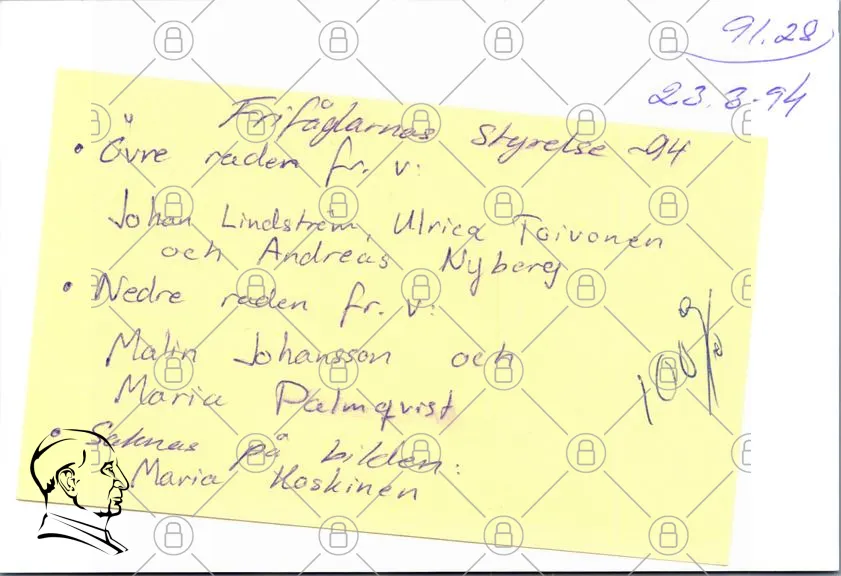 91.28
23.3.94
Frifåglarnas styrelse -94
• Övre raden fr. v:
Johan Lindström, Ulrica Toivonen
och Andreas Nyberg
• Nedre raden fr. v:
Malin Johansson och
Maria Palmqvist
• Saknas på bilden:
Maria Koskinen
100%